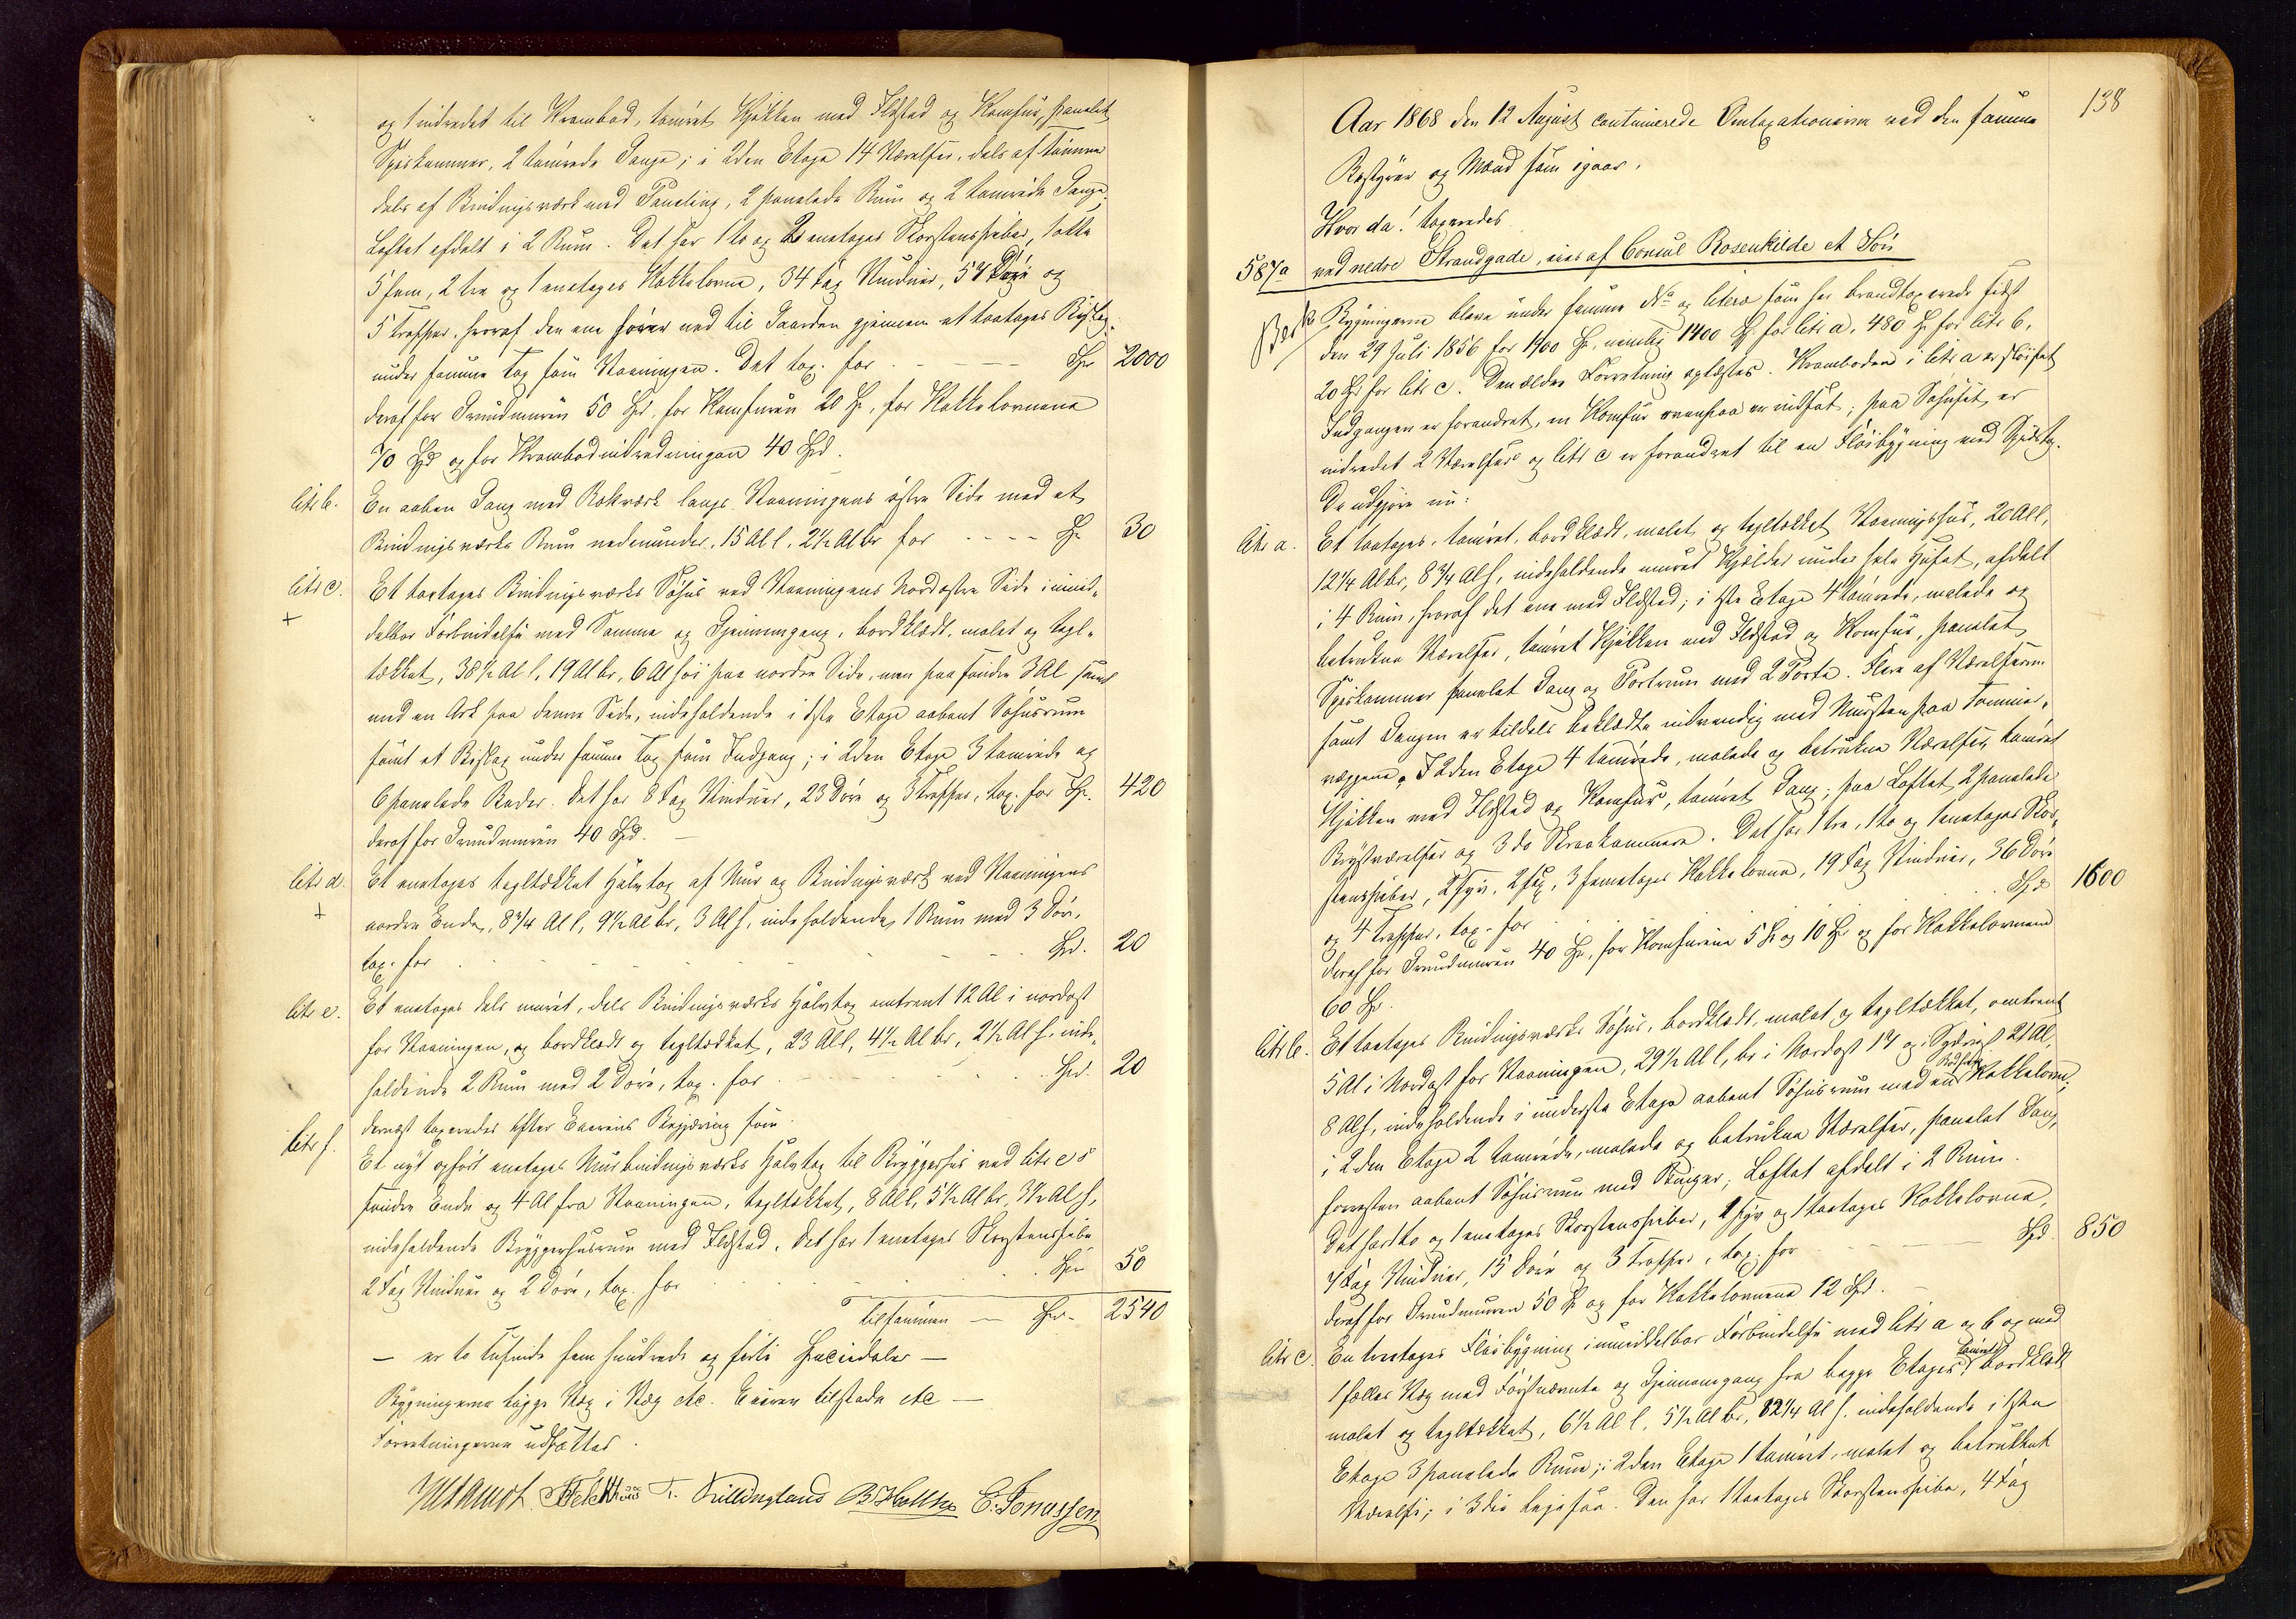 og 1 indredet til Krambod, tømret Kjøkken med Ildsted og Komfur, panelet
Spiskammer, 2 tømrede Gange; i 2den Etage 14 Værelser, dels af Tømmer
dels af Bindingsværk med Paneling, 2 panelede Rum og 2 tømrede Gange,
Loftet afdelt i 2 Rum. Det har 1 to og 2 enetages Skorstenspiber, 1 otte
5 fem, 2 tre og 1 enetages Kakkelovne, 34 Fag Vinduer, 54 Døre og
5 Trapper, hvoraf den ene fører ned til Gaarden gjennem et toetages Bislag
under samme Tag som Vaaningen. Det tax. for - - - Spd 2000
deraf for Grundmuren 50 Spd, for Komfuren 20 Sp, for Kakkelovnene
70 Spd og for Krambodindredningen 40 Spd.
litr b. En aaben Gang med Rækværk langs Vaaningens østre Side med et
Bindingsværks Rum nedenunder, 15 Al l, 2½ Al br for - - - - Sp 30
litr c. Et toetages Bindingsværks Søhus ved Vaaningens Nordøstre Side i umid-
+ delbar Forbindelse med Samme og Gjennemgang, bordklædt, malet og tegl-
tækket, 38½ Al l, 19 Al br, 6 Al høi paa nordre Side, men paa søndre 3 Al samt
med en Ark paa denne Side, indeholdende i 1ste Etage aabent Søhusrum
samt et Bislag under samme Tag som Indgang; i 2den Etage 3 tømrede og
6 panelede Boder. Det har 8 Fag Vinduer, 23 Døre og 3 Trapper, tax. for Sp. 420
deraf for Grundmuren 40 Spd. -
litr d. Et enetages tegltækket Halvtag af Mur og Bindingsværk ved Vaaningens
+ nordre Ende, 8¾ Al l, 9½ Al br, 3 Al h, indeholdende 1 Rum med 3 Døre,
tax. for - - - Spd. 20
litr e. Et enetages dels muret, dels Bindingsværks Halvtag omtrent 12 Al i nordost
for Vaaningen, og bordklædt og tegltækket, 23 Al l, 4½ Al br, 2½ Al h, inde-
holdende 2 Rum med 2 Døre, tax. for - - - Spd. 20
dernæst taxeredes efter Eierens Begjæring som
litr f. Et nyt opført enetages Murbindingsværks Halvtag til Bryggerhus ved litr e's
søndre Ende og 4 Al fra Vaaningen, tegltækket, 8 Al l, 5½ Al br, 3½ Al h,
indeholdende Bryggerhusrum med Ildsted. Det har 1 enetages Skorstenspibe
2 Fag Vinduer og 2 Døre, tax. for - - - Spd 50
tilsammen - Spd. 2540
- er to tusinde fem hundrede og førti Speciedaler -
Bygningerne ligge Væg i Væg etc. Eieren tilstede etc -
Forretningerne udsættes.
T. Killingland B Holthe E. Jonassen
138
Aar 1868 den 12 August continuerede Omtaxationerne ved den samme
Bestyrer og Mænd som igaar.
Hvor da! taxeredes
587a ved nedre Strandgade, eies af Consul Rosenkilde et Søn
Bygningerne bleve under samme No og litera som her brandtaxerede sidst
den 29 Juli 1856 for 1900 Sp, nemlig 1400 Sp for litr a, 480 Sp for litr b,
20 Sp for litr c. Den ældre Forretning oplæstes. Kramboden i litr a er sløifet
Indgangen er forandret, en Komfur ovenpaa er indsat; paa Søhuset er
indredet 2 Værelser og litr c er forandret til en Fløibygning med Spidstag.
De udgjøre nu:
litr a. Et toetages, tømret, bordklædt, malet og tegltækket Vaaningshus, 20 Al l,
12¼ Al br, 8¾ Al h, indeholdende muret Kjælder under hele Huset, afdelt
i 4 Rum, hvoraf det ene med Ildsted; i 1ste Etage 4 tømrede, malede og
betrukne Værelser, tømret Kjøkken med Ildsted og Komfur, panelet
Spiskammer panelet Gang og Portrum med 2 Porte. Flere af Værelserne
samt Gangen er tildels beklædte indvendig med Mursten paa Tømmer-
væggene. I 2den Etage 4 tømrede, malede og betrukne Værelser, tømret
Kjøkken med Ildsted og Komfur, tømret Gang; paa Loftet 2 panelede
Kvistværelser og 3 do Skraakammere. Det har 1 tre, 1 to og 1 enetages Skor-
stenspiber, 2 syv, 2 sex, 3 femetages Kakkelovne, 19 Fag Vinduer, 36 Døre
og 4 Trapper, tax. for - - - Spd 1600
deraf for Grundmuren 40 Sp, for Komfurene 5 Sp og 10 Sp og for Kakkelovnene
60 Sp.
litr b. Et toetages Bindingsværks Søhus, bordklædt, malet og tegltækket, omtrent
5 Al i Nordost for Vaaningen, 29½ Al l, br i Nordost 17 og i Sydvest 21 Al,
8 Al h, indeholdende i underste Etage aabent Søhusrum med en Kakkelovn;
i 2den Etage 2 tømrede, malede og betrukne Værelser, panelet Gang,
forresten aabent Søhusrum med Binger; Loftet afdelt i 2 Rum.
Det har 1 to og 1 enetages Skorstenspiber, 1 syv og 1 toetages Kakkelovne,
7 Fag Vinduer, 15 Døre og 3 Trapper, tax. for - - - Spd. 850
deraf for Grundmuren 50 Sp og for Kakkelovnene 12 Spd. -
litr c. En toetages Fløibygning i umiddelbar Forbindelse med litr a og b og med
1 fælles Væg med Førstnævnte og Gjennemgang fra begge Etager, tømret, bordklædt
malet og tegltækket, 6½ Al l, 5½ Al br, 12¼ Al h. indeholdende i 1ste
Etage 3 panelede Rum; i 2den Etage 1 tømret, malet og betrukket
Værelse; i 3die ligesaa. Den har 1 toetages Skorstenspibe, 4 Fag